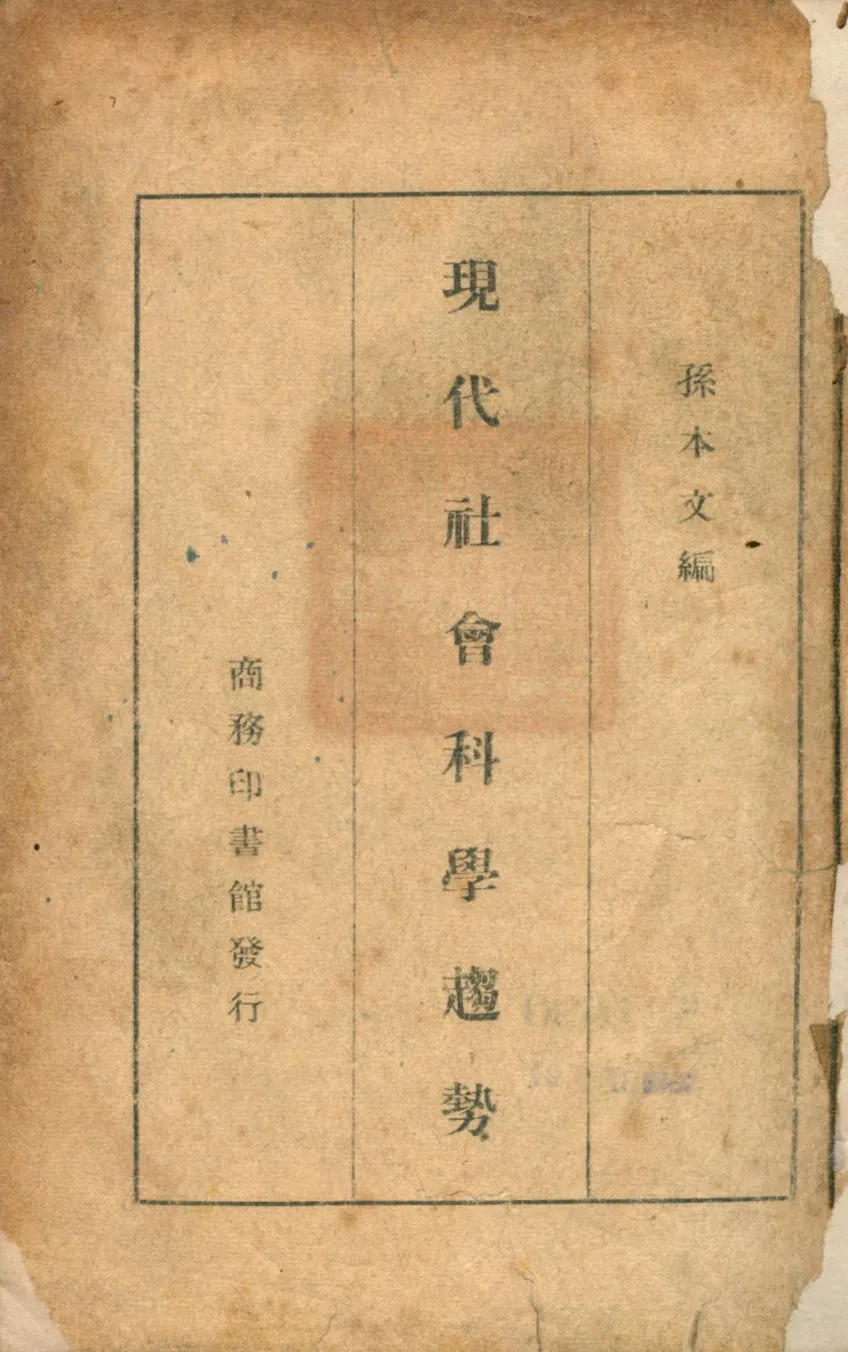 孫本文編
現代社會科學趨勢
商務印書館發行